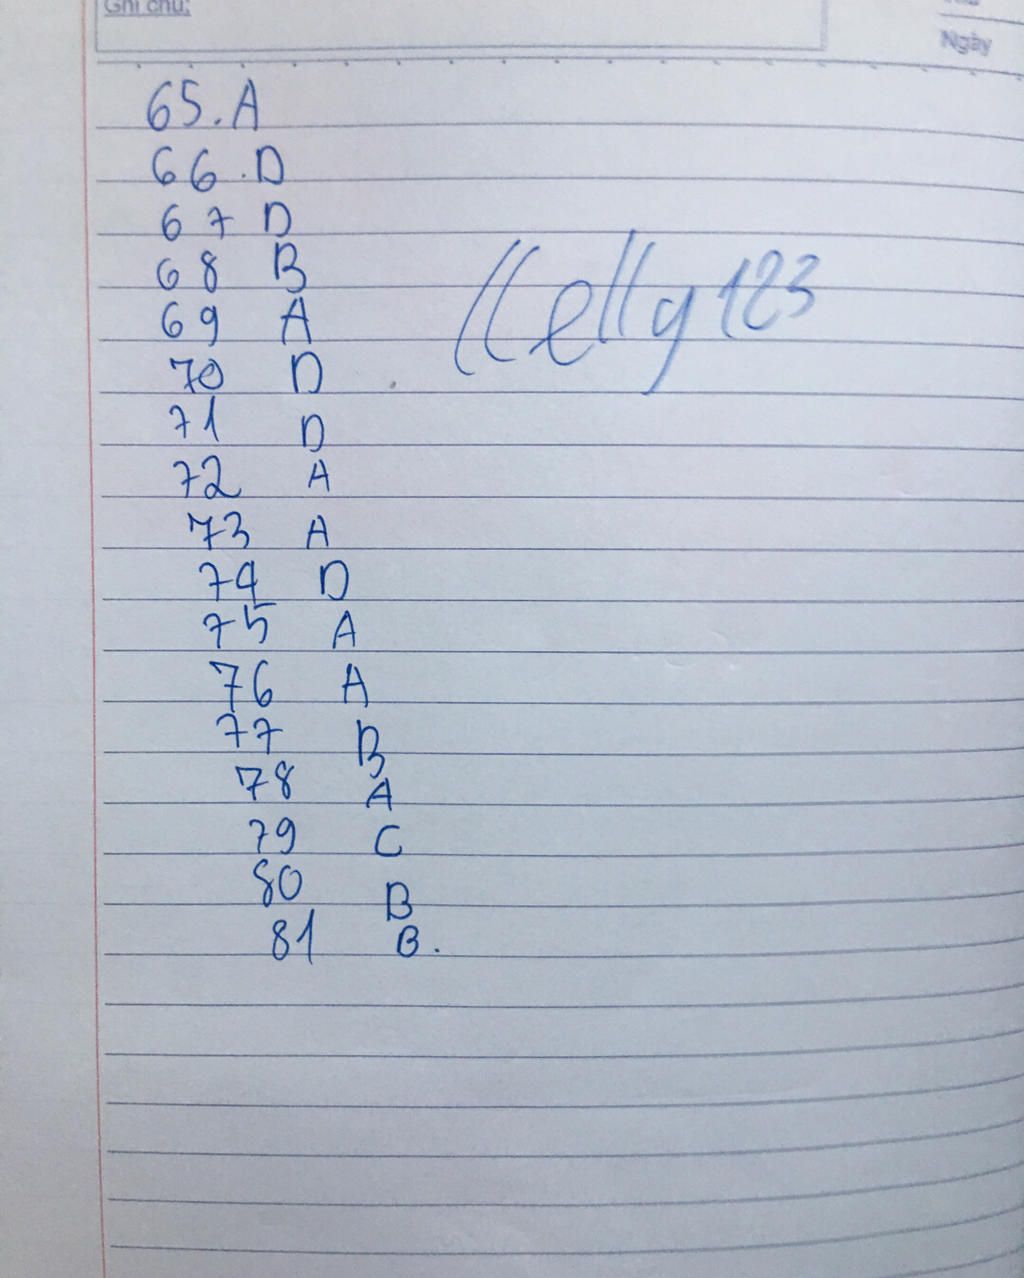 Ghi chú:
Ngày
65. A
66. D
67 D
68 B
69 A
70 D
71 D
72 A
73 A
74 D
75 A
76 A
77 B
78 A
79 C
80 B
81 B.